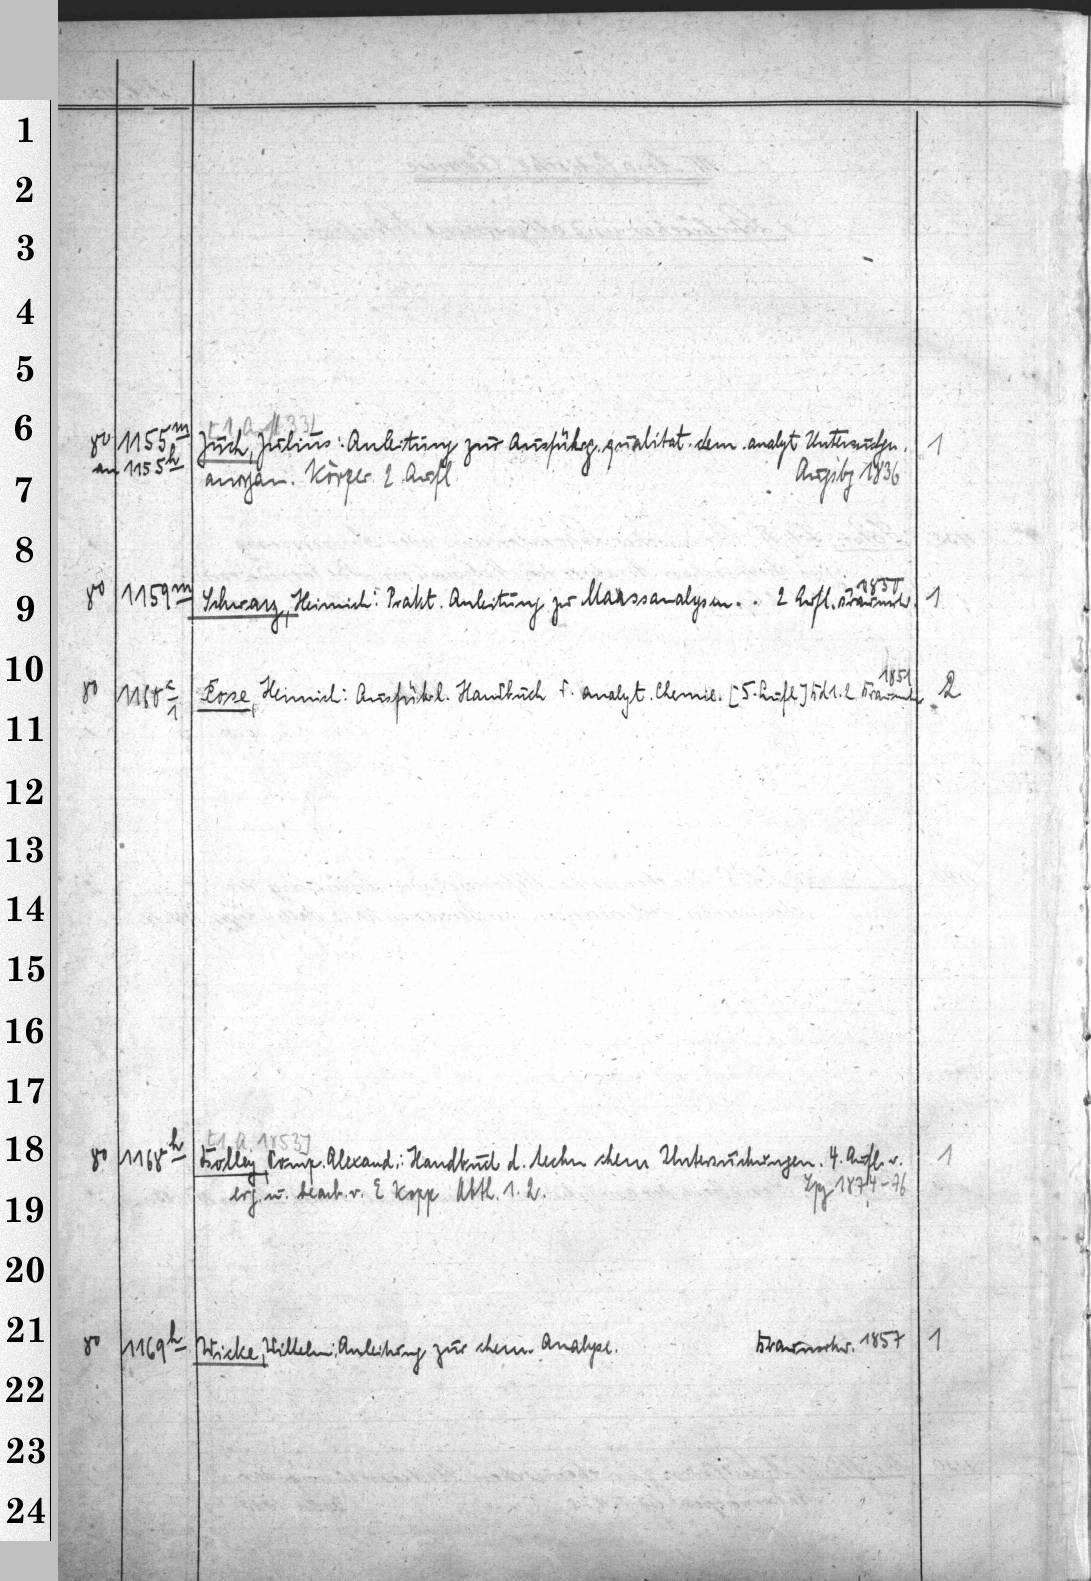 1
2
3
4
5
6
7
8
9
10
11
12
13
14
15
16
17
18
19
20
21
22
23
24
80 1155m Juch, Julius: Anleitung zur Ausführg. qualitat. chem. analyt Untersuchgn. 1
an 1155h anorgan. Körper 2 Aufl Augsbg 1836
80 1159m Schwarz, Heinrich: Prakt. Anleitung zu Maassanalysen. 2 Aufl. Braunschw. 1
80 Rose, Heinrich: Ausführl. Handbuch d. analyt. Chemie. [5. Aufl] Bd 1. 2 Braunschw 1851 2
[1. A. 1853]
80 1168h Bolley, Pomp. Alexand.: Handbuch d. techn chem Untersuchungen. 4. Aufl. v. 1
erg. u. bearb. v. E Kopp Abth. 1. 2. Lpg 1874-76
80 1169h Wicke, Wilhelm: Anleitung zur chem Analyse. Braunschw. 1857 1